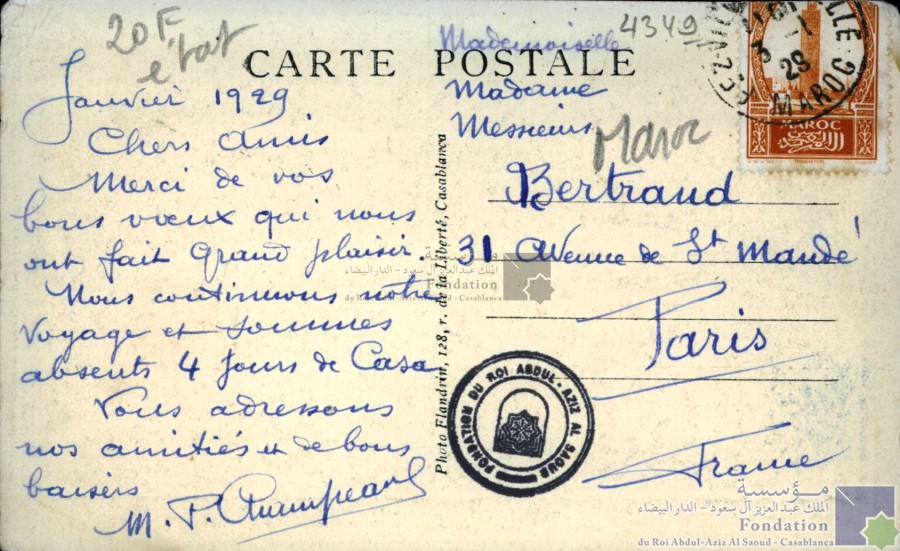 20F
etat
4349
CARTE POSTALE
Janvier 1929
Chers Amis
Merci de vos
bons vœux qui nous
ont fait Grand plaisir.
Nous continuons notre
voyage et sommes
absents 4 jours de Casa
Vous adressons
nos amitiés et de bons
baisers
M. P.
Photo Flandrin, 128, r. de la Liberté, Casablanca
Mademoiselle
Madame
Messieurs
Maroc
Bertrand
31 Avenue de St Mandé
Paris
France
3 -1
29
MAROC
MAROC
FONDATION DU ROI ABDUL-AZIZ AL SAOUD
مؤسسة
الملك عبد العزيز آل سعود - الدار البيضاء
Fondation
du Roi Abdul-Aziz Al Saoud - Casablanca
مؤسسة
الملك عبد العزيز آل سعود - الدار البيضاء
Fondation
du Roi Abdul-Aziz Al Saoud - Casablanca